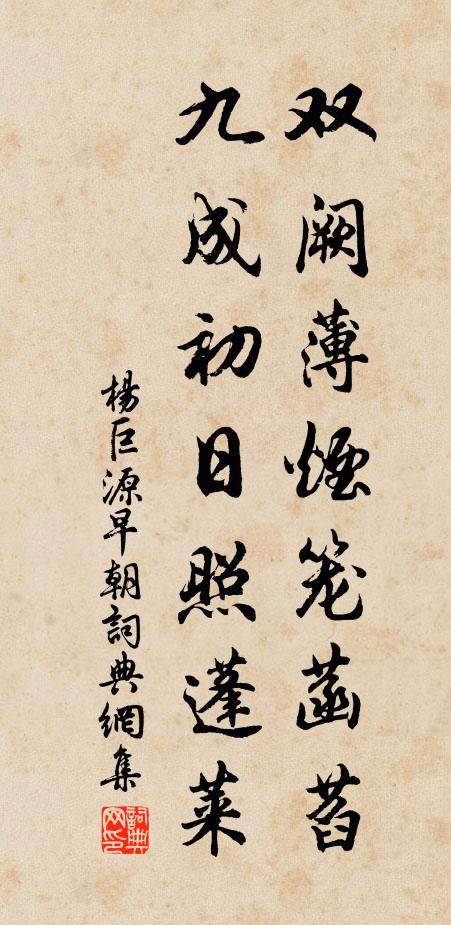 双阙薄烟笼菡萏
九成初日照蓬莱
楊巨源早朝詞典網集
詞典网印